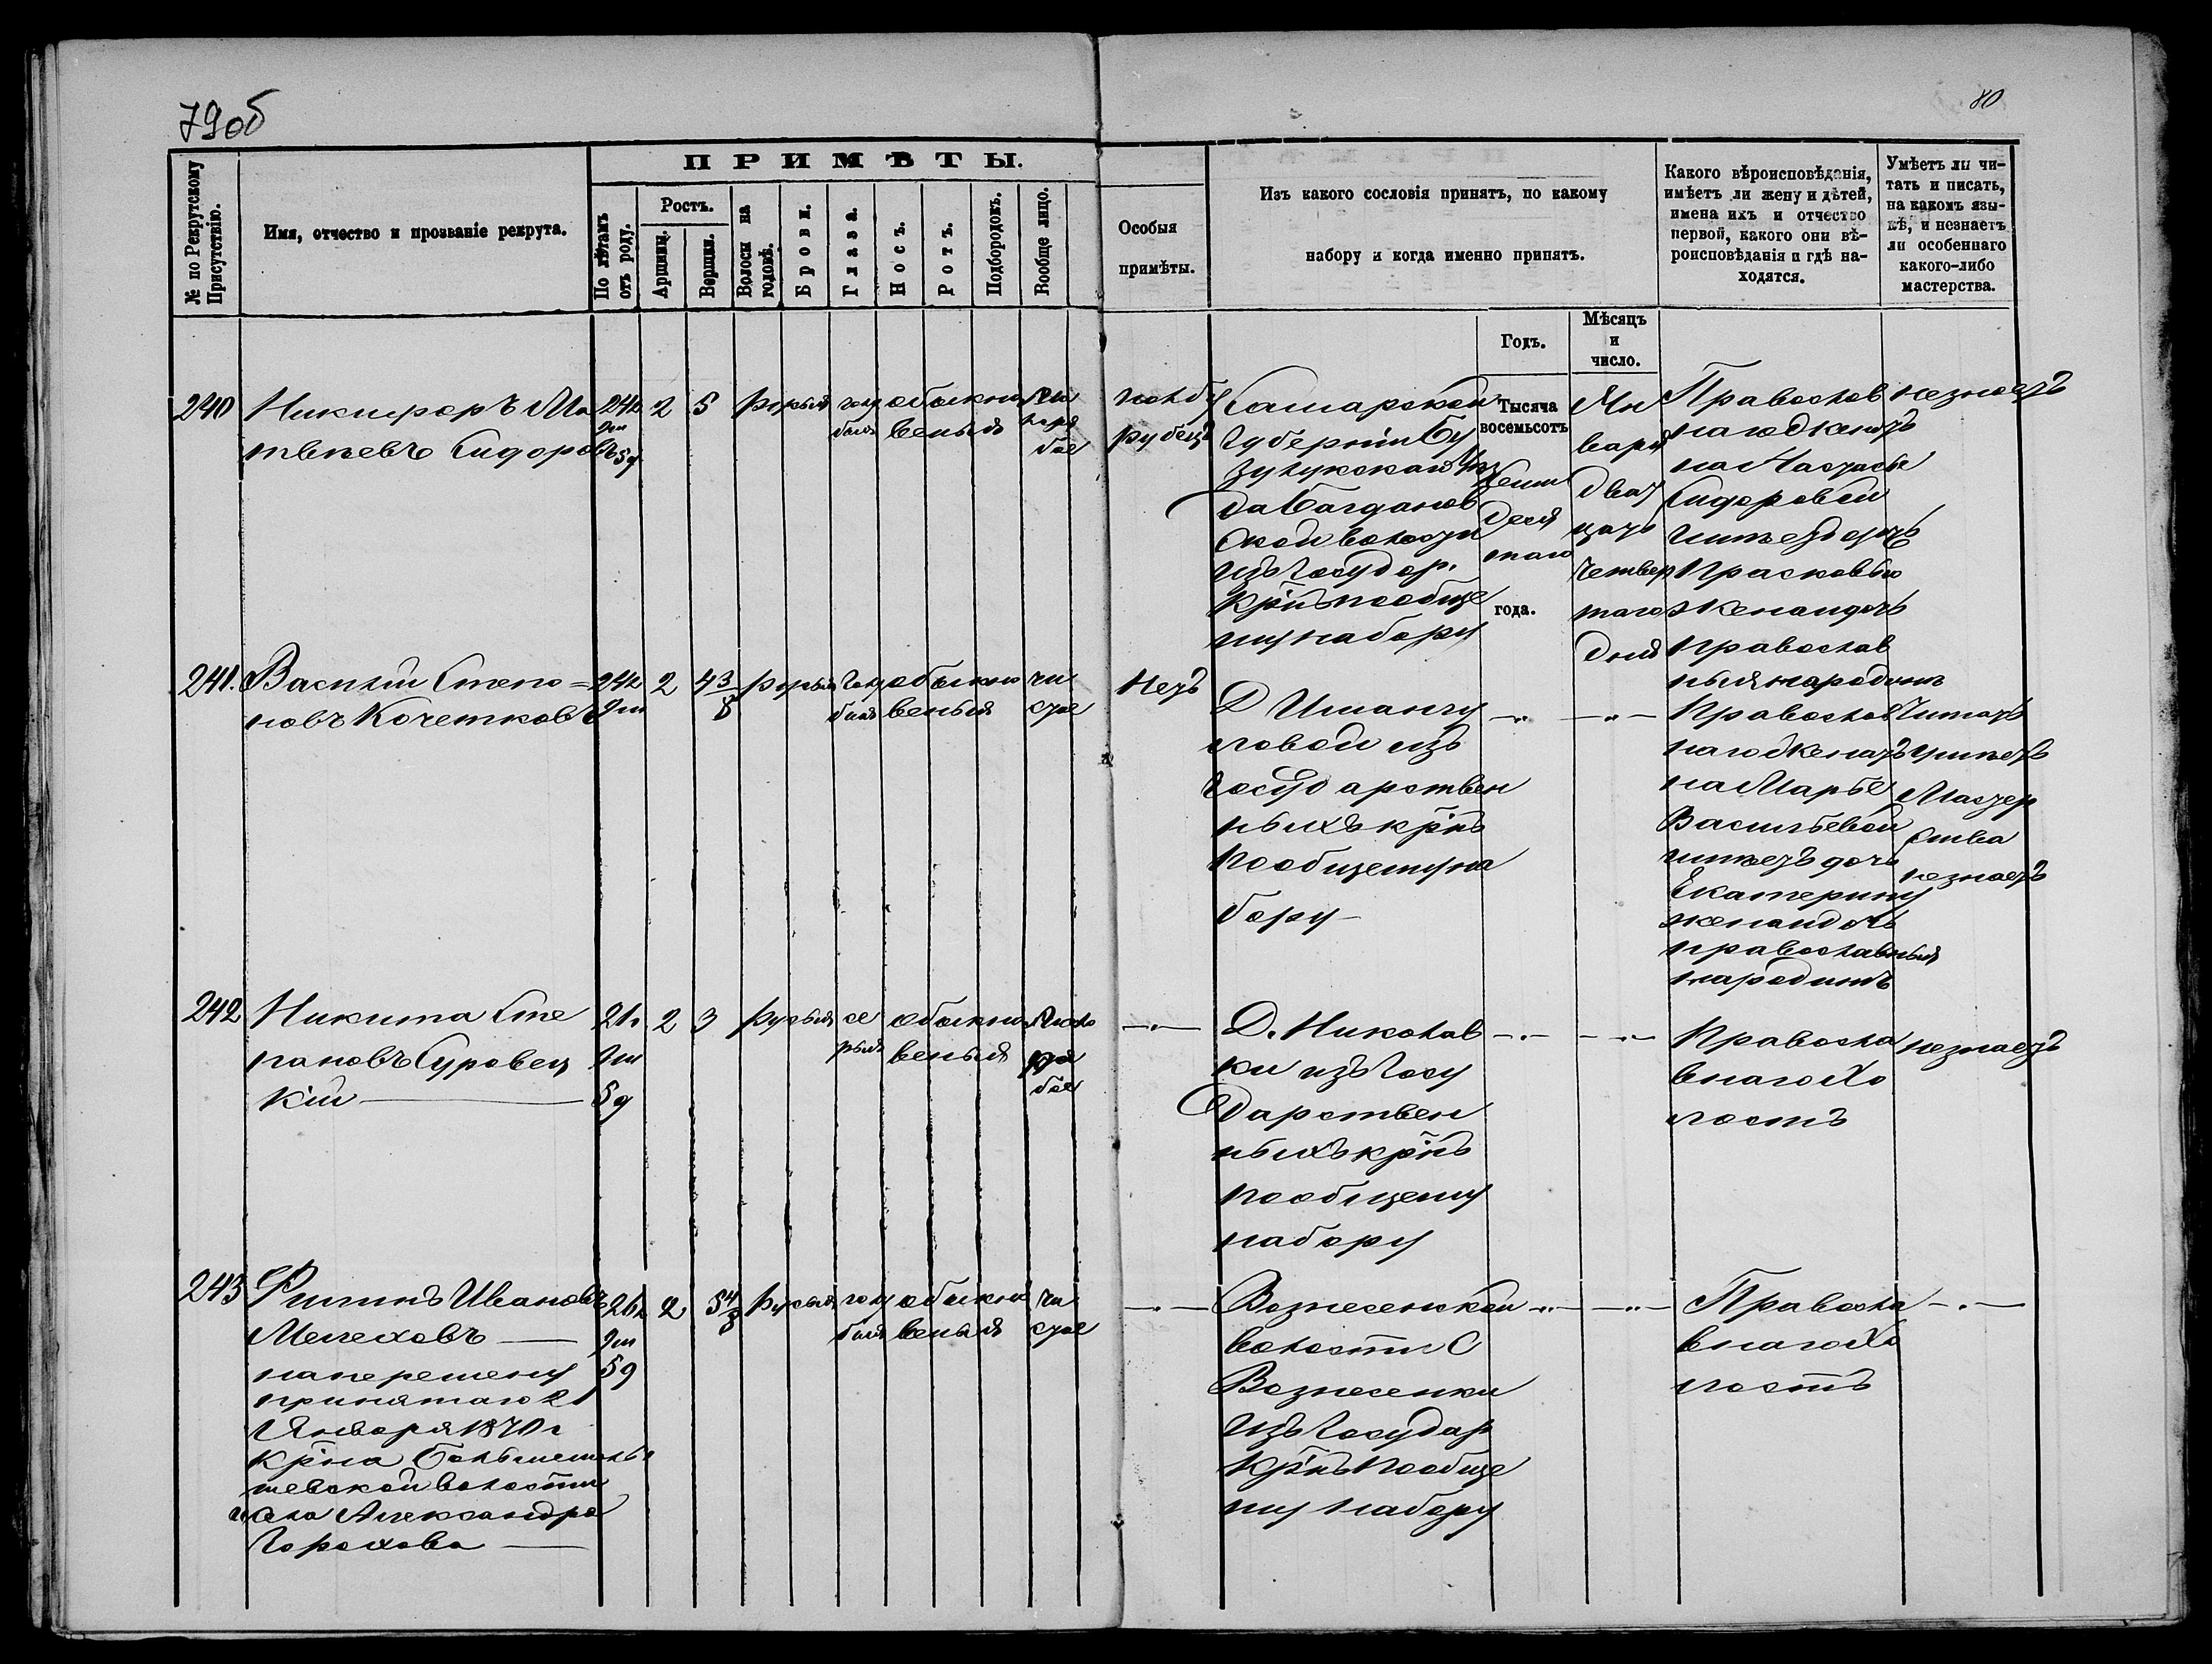 79об
80
№ по Рекрутскому Присутствію.
Имя, отчество и прозваніе рекрута.
ПРИМѢТЫ.
По лѣтамъ отъ роду.
Ростъ.
Аршинъ.
Вершки.
Волосы на головѣ.
Брови.
Глаза.
Носъ.
Ротъ.
Подбородокъ.
Вообще лицо.
Особыя
примѣты.
Изъ какого сословія принятъ, по какому
набору и когда именно принятъ.
Годъ.
Мѣсяцъ
и
число.
Какого вѣроисповѣданія,
имѣетъ ли жену и дѣтей,
имена ихъ и отчество
первой, какого они вѣ-
роисповѣданія и гдѣ на-
ходятся.
Умѣетъ ли чи-
тать и писать,
на какомъ язы-
кѣ, и незнаетъ
ли особеннаго
какого-либо
мастерства.
240
Никифоръ Ма
твѣевъ Сидоровъ
2 5 русыя голу обыкно
былъ веныя
рябое
рубецъ
Самарской
Губерніи Бу
зулукскаго Уѣз
да Богданов
ской волости
изъ Государ.
крѣнъ по обще
му набору
Тысяча
восемьсотъ
семи
деся
таго
года.
Ян
варя
двад
цать
четвер
таго
дня
Православ
наго женатъ
на Настасье
Сидоровой
имѣетъ дочь
Прасковью
жена и дочь
православ
ныя на родинѣ
незнаетъ
241.
Василій Степа=
новъ Кочетковъ
2 4 3/8 русыя голу обыкно чи
былъ веныя стое
Нетъ
Д Имангу
ловой изъ
государствен
ныхъ крѣнъ
по общему на
бору
Православ
наго женатъ
на Марье
Васильевой
имѣетъ дочь
Екатерину
жена и дочь
православныя
на родинѣ
Читать
умѣетъ
Мастер
ства
незнаетъ
242
Никита Сте
пановъ Суровец
кій
21
5 д
2 3 русыя се обыкно
рыя веныя
рябое
Д. Николав
ки изъ Госу
дарствен
ныхъ крѣнъ
по общему
набору
Правосла
внаго Хо
лостъ
незнаетъ
243
Филипъ Ивановъ
Мелеховъ
на перемену
принятаго 21
Января 1870 г
крѣна
волости
села Александра
Горохова
26
5 д
2 5 4/8 русыя голу обыкно чи
былъ веныя стое
Вознесенской
волости С
Вознесенки
изъ Государ
крѣнъ по обще
му набору
Правосла
внаго Хо
лостъ